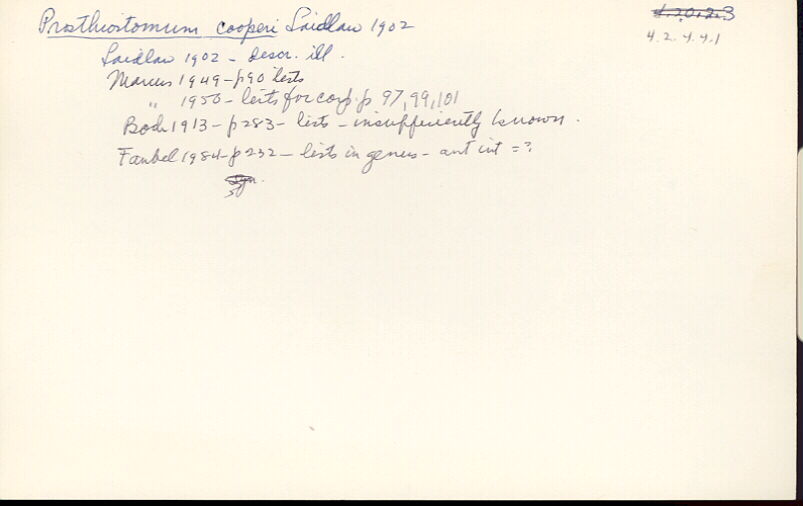 Prosthiostomum cooperi Laidlaw 1902
4.20.2.3
4.2.4.4.1
Laidlaw 1902 - descr. ill.
Marcus 1949 - p90 lists
" 1950 - lists for comp. p 97, 99, 101
Bock 1913 - p283 - lists - insufficiently known.
Faubel 1984 - p232 - lists in genus - ant int = ?